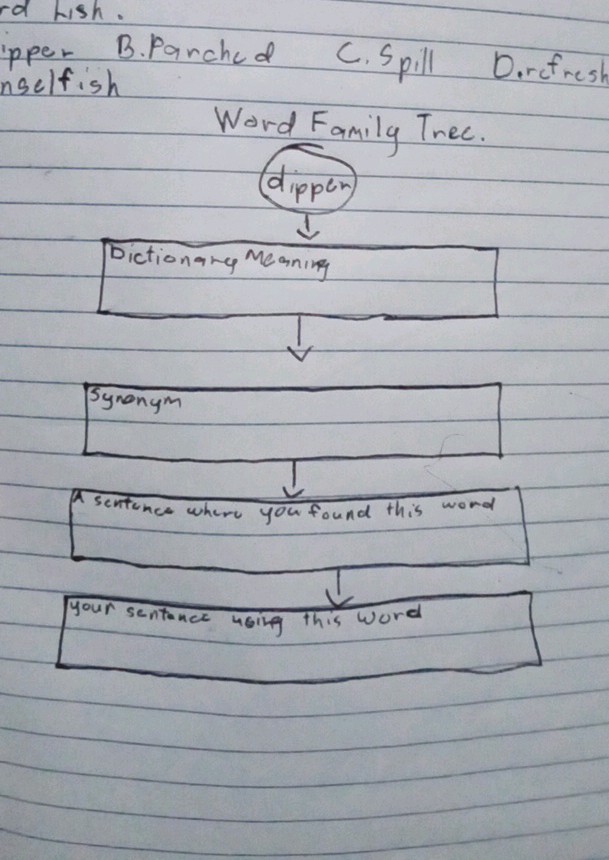 rd Lish.
ipper B. Parched C. Spill D. refresh
nselfish
Word Family Tree.
dipper
Dictionary Meaning
Synonym
A sentence where you found this word
your sentence using this word